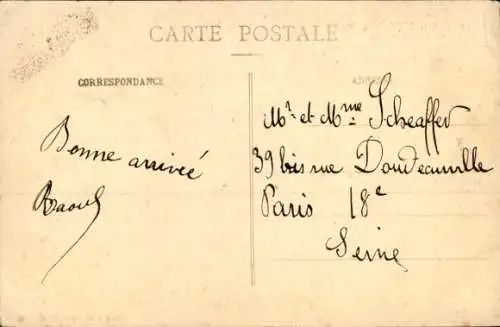 CARTE POSTALE
CORRESPONDANCE
ADRESSE
Bonne arrivée
Raoul
Mr et Mme Scheaffer
39 bis rue Doudeauville
Paris 18e
Seine